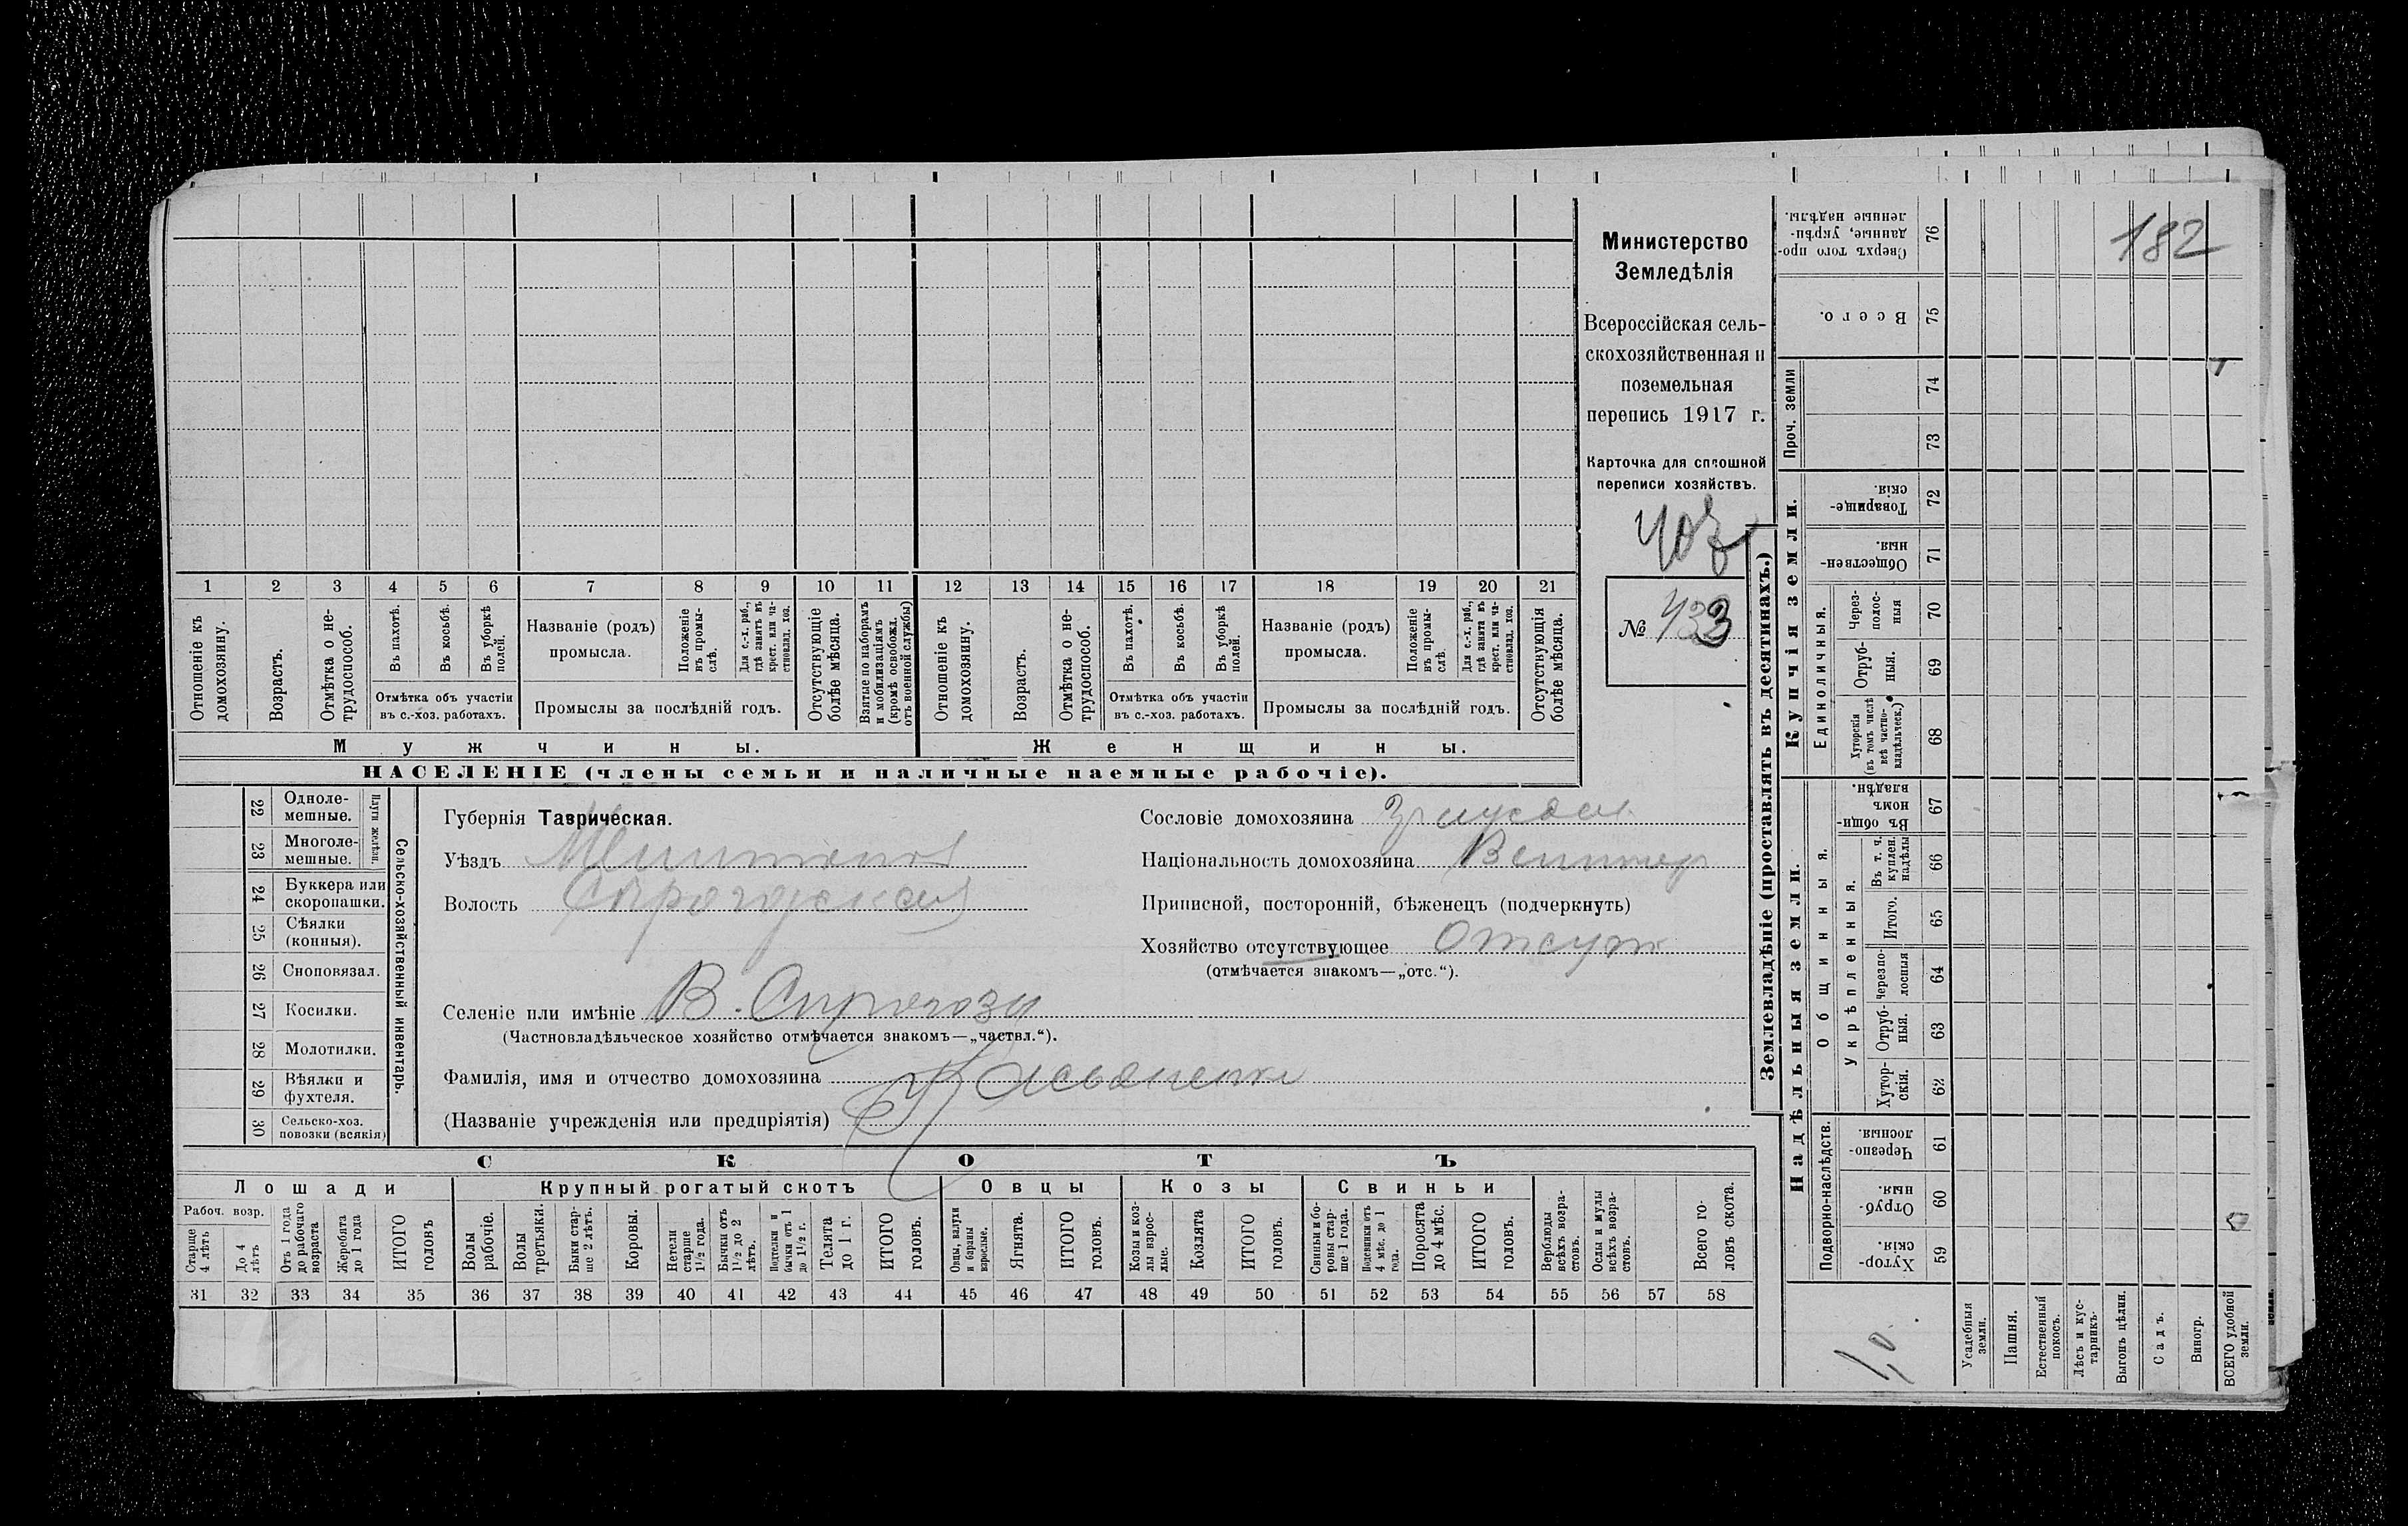 182
Министерство
Земледѣлія
Всероссійская сель-
скохозяйственная и
поземельная
перепись 1917 г.
Карточка для сплошной
переписи хозяйствъ.
№ 433
1 2 3 4 5 6 7 8 9 10 11 12 13 14 15 16 17 18 19 20 21
Отношеніе къ домохозяину.
Возрастъ.
Отмѣтка о не-трудоспособ.
Въ пахотѣ.
Въ косьбѣ.
Въ уборкѣ полей.
Отмѣтка объ участіи
въ с.-хоз. работахъ.
Названіе (родъ)
промысла.
Положеніе въ промы-слѣ.
Для с.-х. раб., гдѣ занятъ въ крест. или ча-стновлад. хоз.
Промыслы за послѣдній годъ.
Отсутствующіе болѣе мѣсяца.
Взятые по наборамъ и мобилизаціямъ (кромѣ освобожд. отъ военной службы)
Отношеніе къ домохозяину.
Возрастъ.
Отмѣтка о не-трудоспособ.
Въ пахотѣ.
Въ косьбѣ.
Въ уборкѣ полей.
Отмѣтка объ участіи
въ с.-хоз. работахъ.
Названіе (родъ)
промысла.
Положеніе въ промы-слѣ
Для с.-х. раб., гдѣ занята въ крест. или ча-стновлад. хоз.
Промыслы за послѣдній годъ.
Отсутствующія болѣе мѣсяца.
Мужчины.
Женщины.
НАСЕЛЕНІЕ (члены семьи и наличные наемные рабочіе).
22 Одноле-
мешные.
23 Многоле-
мешные.
Плуги желѣзн.
24 Буккера или
скоропашки.
25 Сѣялки
(конныя).
26 Сноповязал.
27 Косилки.
28 Молотилки.
29 Вѣялки и
фухтеля.
30 Сельско-хоз.
повозки (всякія)
Сельско-хозяйственный инвентарь.
Губернія Таврическая.
Уѣздъ
Волость
Селеніе или имѣніе В. Сирогозы
(Частновладѣльческое хозяйство отмѣчается знакомъ—„частвл.“).
Фамилія, имя и отчество домохозяина
(Названіе учрежденія или предпріятія)
Сословіе домохозяина
Національность домохозяина
Приписной, посторонній, бѣженецъ (подчеркнуть)
Хозяйство отсутствующее Отсутт
(отмѣчается знакомъ—„отс.“).
СКОТЪ
Лошади
Крупный рогатый скотъ
Овцы
Козы
Свиньи
Рабоч. возр.
Старше 4 лѣтъ
До 4 лѣтъ
Отъ 1 года до рабочаго возраста
Жеребята до 1 года
ИТОГО головъ
Волы рабочіе.
Волы третьяки.
Быки стар-ше 2 лѣтъ.
Коровы.
Нетели старше 1½ года.
Бычки отъ 1½ до 2 лѣтъ.
Подтелки и бычки отъ 1 до 1½ г.
Телята до 1 г.
ИТОГО головъ.
Овцы, валухи и бараны взрослые.
Ягнята.
ИТОГО головъ.
Козы и коз-лы взрос-лые.
Козлята
ИТОГО головъ.
Свиньи и бо-ровы стар-ше 1 года.
Подсвинки отъ 4 мѣс. до 1 года.
Поросята до 4 мѣс.
ИТОГО головъ.
Верблюды всѣхъ возра-стовъ.
Ослы и мулы всѣхъ возра-стовъ.
Всего го-ловъ скота.
31 32 33 34 35 36 37 38 39 40 41 42 43 44 45 46 47 48 49 50 51 52 53 54 55 56 57 58
Землевладѣніе (проставлять въ десятинахъ.)
Купчія земли.
Надѣльныя земли.
Сверхъ того про-данные, укрѣп-ленные надѣлы. 76
Всего. 75
Проч. земли
74
73
Товарище-скія. 72
Обществен-ныя. 71
Единоличныя.
Через-полос-ныя 70
Отруб-ныя. 69
Хуторскія (въ томъ числѣ всѣ частно-владѣльческ.) 68
Общинныя.
Въ общин-номъ владѣн. 67
Укрѣпленныя.
Въ т. ч. куплен. надѣлы 66
Итого. 65
Черезпо-лосныя 64
Отруб-ныя. 63
Хутор-скія. 62
Подворно-наслѣдств.
Черезпо-лосныя. 61
Отруб-ныя. 60
Хутор-скія. 59
Усадебныя земли.
Пашня.
Естественный покосъ.
Лѣсъ и кус-тарникъ.
Выгонъ цѣлин.
Садъ.
Виногр.
ВСЕГО удобной земли.